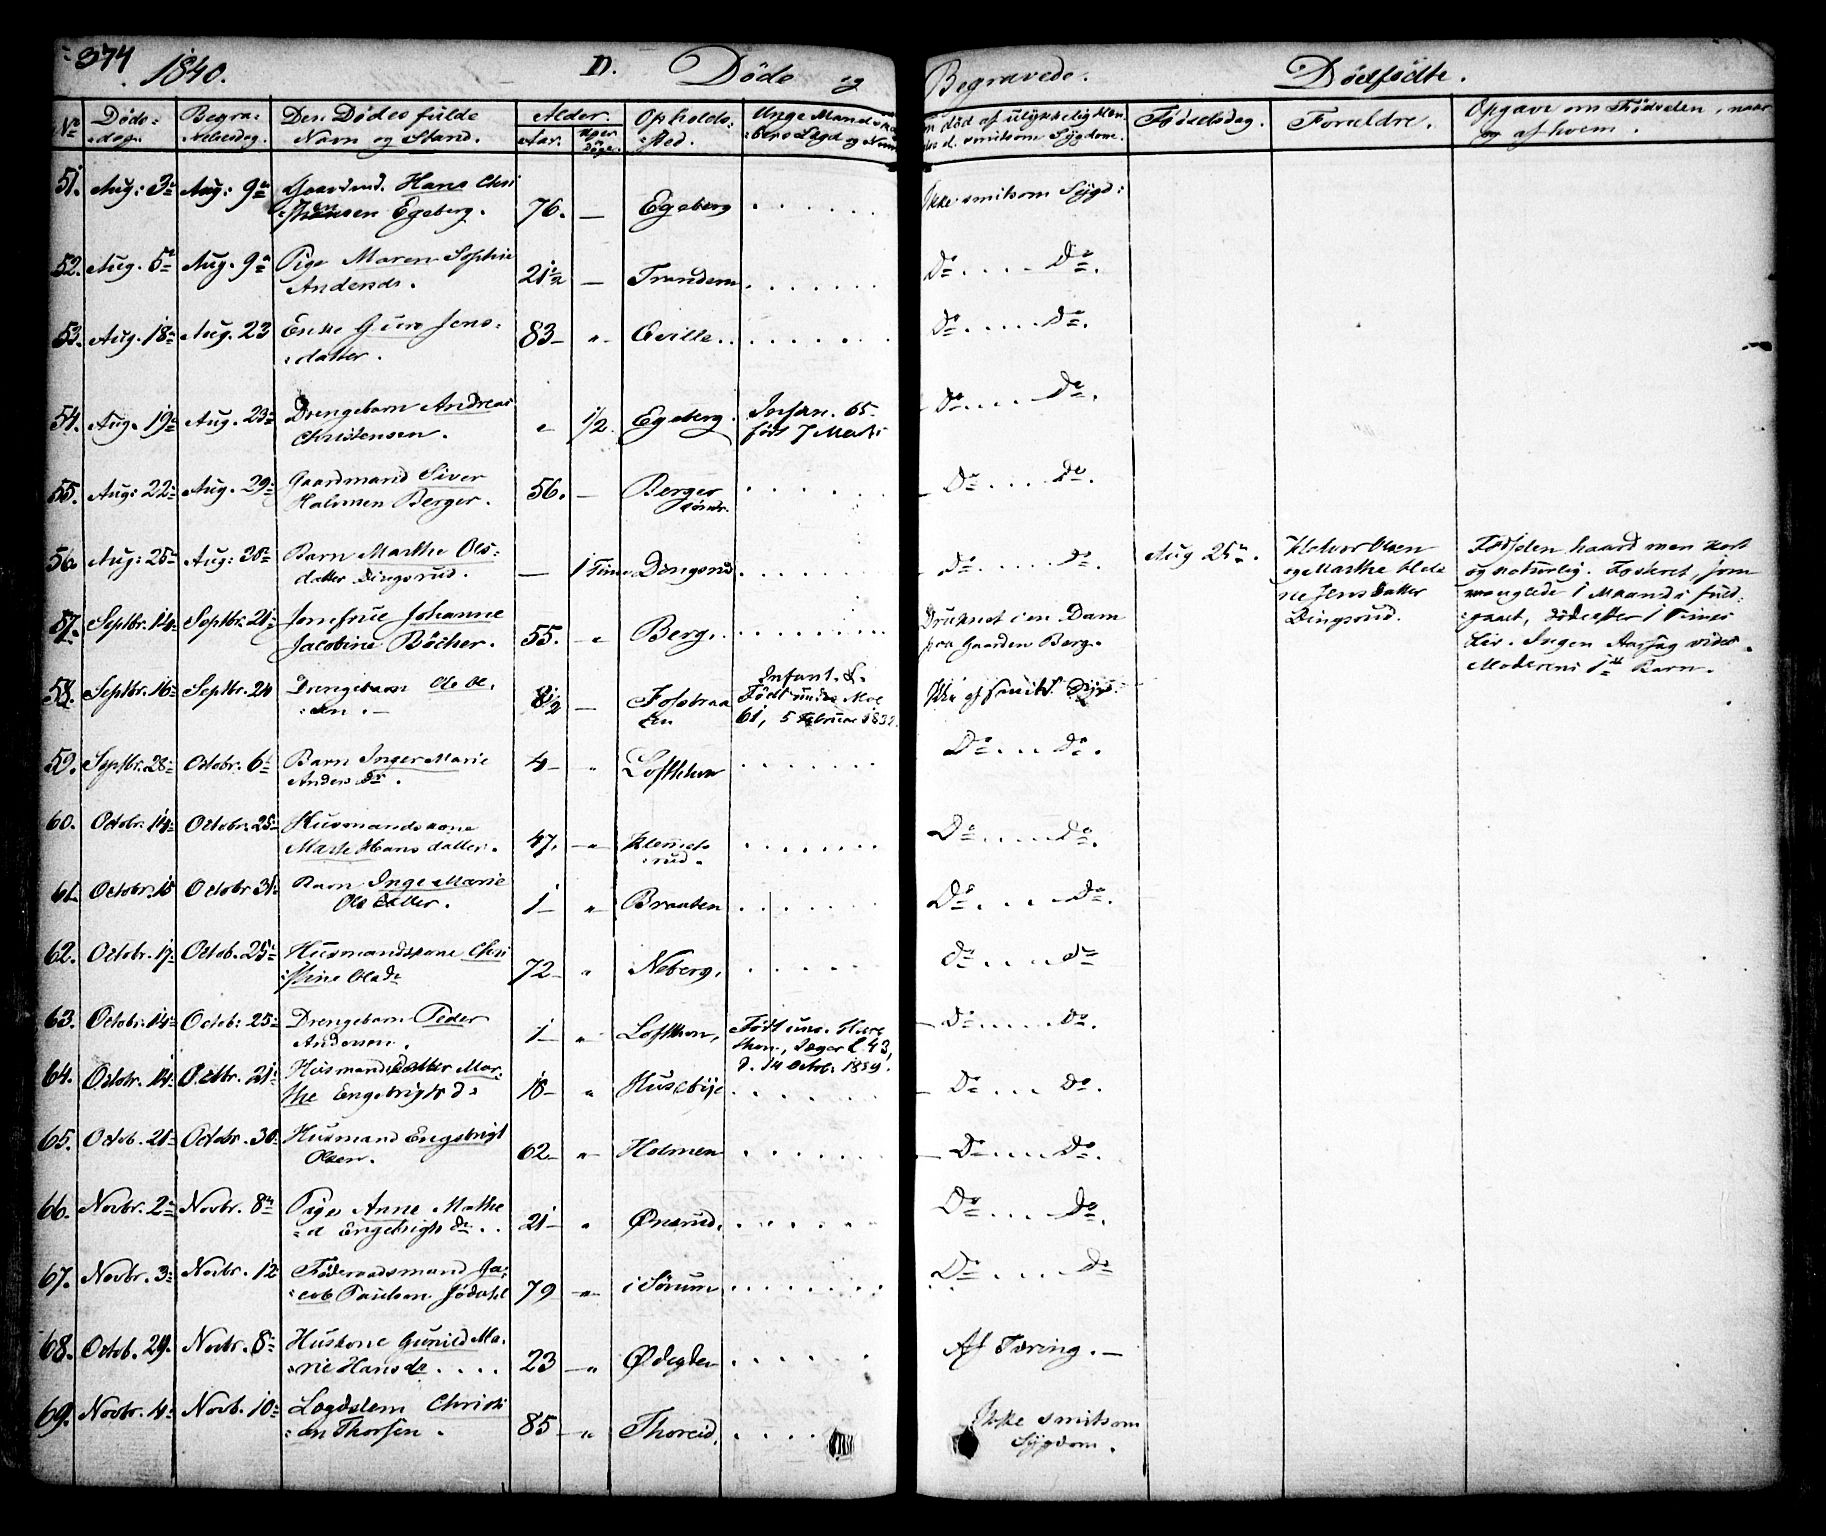 374
1840.
D. Døde og Begravede.
Dødfødte.
No
Døds-dag.
Begra-velsesdag.
Den Dødes fulde Navn og Stand.
Alder.
Aar.
Uger Døge.
Opholds-Sted.
Unge Mandska-bers Lægd og Num
Om død af ulykkelig Hæn-
delse el. smitsom Sygdom.
Fødselsdag.
Forældre.
Opgave om Fødselen, naar og af hvem.
51. Aug: 3n Aug: 9n Gaardmd. Hans Chri
stensen Egeberg. 76. — Egeberg . . . . . . Ikke smitsom Sygd:
52. Aug. 5n Aug. 9n Pige Maren Sophie
Andersdr. 21 1/2 — Trandem . . . . . . Do . . . . Do.
53. Aug. 18n Aug. 23 Enke Guro Jens-
datter. 83 — " Eville . . . . . . . Do . . . . Do.
54. Aug. 19n Aug. 23n Drengebarn Andreas
Christensen. " 1/2. Egeberg. Infan. 65. født 7 Marts Do . . . . Do.
55. Aug: 22n Aug. 29n Gaardmand Siver
Halvorsen Berger. 56. — Berger søndr. . . . . . Do . . . . Do.
56. Aug: 25n Aug: 28n Barn Marthe Ols-
datter Dingsrud. — 1 Time Dingsrud . . . . . . Do . . . . Do. Aug 25n.
Halvor Olsen
og Marthe Hele
ne Jensdatter
Dingsrud.
Fødselen haard men kort
og naturlig. Fosteret, som
manglede 1 Maands fuld-
gaaet, døde efter 1 Times
Liv. Ingen Aarsag vides.
Moderens 1ste Barn.
57. Septbr. 14n Septbr. 21n Jomfrue Johanne
Jacobine Böcher. 55. " Berg. . . . . . . . Druknet i en Dam
paa Gaarden Berg.
58. Septbr. 16n Septbr. 24 Drengebarn Ole Ol-
sen. — 8 1/2 — Fosbraa
ten Infant. L.
Født under Moe
61, 5 Februar 1832. Ikke af smits. Syg.
59. Septbr. 28n Octobr. 6n Barn Inger Marie
Anders dr. 4 — " Lofthun . . . . . . Do . . . Do.
60. Octobr. 14n Octobr. 25n Husmandskone
Marte Hans datter. 47. — " Klemets
rud. . . . . . . . Do . . . . Do.
61. Octobr. 15 Octobr. 31n Barn Inge Marie
Ols datter. 1 — " Braaten . . . . . . Do . . . . Do.
62. Octobr. 17n Octob. 25n Husmandskone Chri
stine Olsdr 72 — " Neberg. . . . . . Do . . . . Do
63. Octobr. 14n Octob: 25n Drengebarn Peder
Andersen. 1 — " Lofthun, Født und. Hurd
hun, Læger L. 43,
d. 14 Octbr. 1839. Do . . . . Do.
64. Octobr. 14n Octbr. 21n Husmandsdatter Mar-
the Engebrigts d. 18 — " Husebye . . . . . . Do . . . Do.
65. Octob. 21n Octobr. 30n Husmand Engebrigt
Olsen. 62 — " Holmen . . . . . . Do . . . . Do.
66. Novbr. 2n Novbr. 8n Pige Anne Mathe
a Engebrigts dr. . . 21 — " Ønsrud. . . . . . . Do . . . . Do.
67. Novbr. 3n Novbr. 12 Føderaadsmand Ja-
cob Paulsen Jødahl 79 — " i Sørum . . . . . . . Do . . . . Do
68. Octob. 29. Novbr. 8n Huskone Gunild Ma-
rie Hansdr. . . . 23 — " Ødegden . . . . . . Af Tæring. —
69. Novbr. 4n Novb. 10n Lægdslem Christi
an Thorsen. 85 — " Thoreid. . . . . Ikke smitsom
Sygdom.